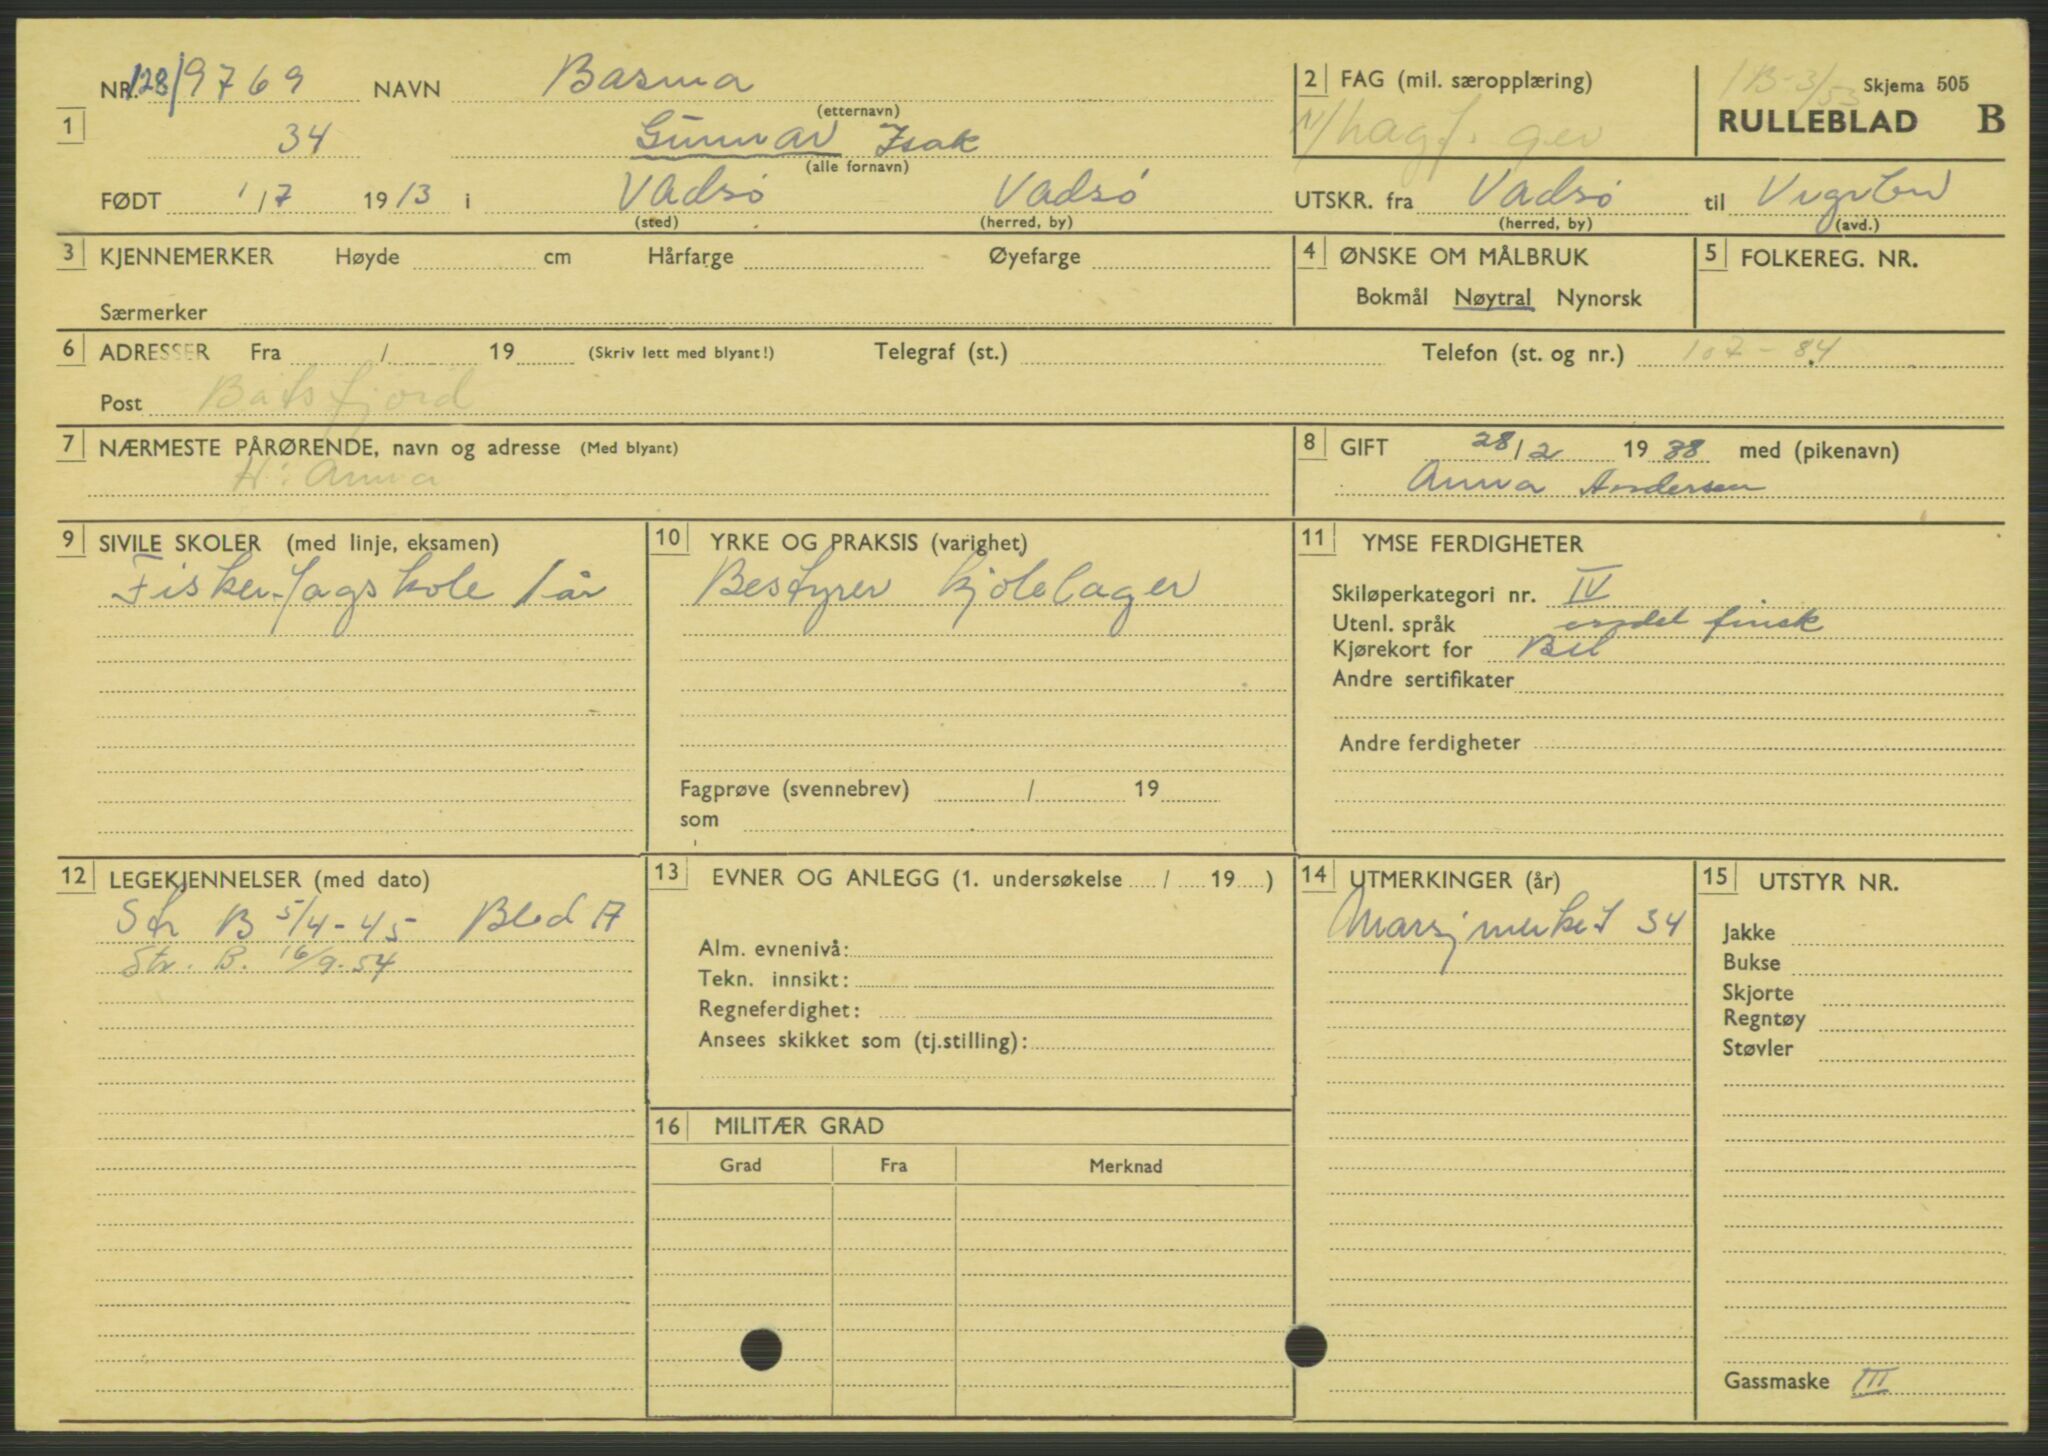 NR. 128/9769 NAVN Basma
(etternavn)
1
34 Gunnar Isak
(alle fornavn)
FØDT 1/7 1913 i Vadsø Vadsø
(sted) (herred, by)
2 FAG (mil. særopplæring)
1 B-3/53 Skjema 505
RULLEBLAD B
UTSKR. fra Vadsø til
(herred, by) (avd.)
3 KJENNEMERKER Høyde cm Hårfarge Øyefarge
Særmerker
4 ØNSKE OM MÅLBRUK
Bokmål Nøytral Nynorsk
5 FOLKEREG. NR.
6 ADRESSER Fra / 19 (Skriv lett med blyant!) Telegraf (st.) Telefon (st. og nr.) 107-84
Post Båtsfjord
7 NÆRMESTE PÅRØRENDE, navn og adresse (Med blyant)
H: Anna
8 GIFT 28/2 1938 med (pikenavn)
Anna Andersen
9 SIVILE SKOLER (med linje, eksamen)
Fisker-fagskole 1 år
10 YRKE OG PRAKSIS (varighet)
Bestyrer kjølelager
Fagprøve (svennebrev) / 19
som
11 YMSE FERDIGHETER
Skiløperkategori nr. IV
Utenl. språk finsk
Kjørekort for Bil
Andre sertifikater
Andre ferdigheter
12 LEGEKJENNELSER (med dato)
Str B 5/4-45 Blod A
Str. B. 16/9-54
13 EVNER OG ANLEGG (1. undersøkelse / 19 )
Alm. evnenivå:
Tekn. innsikt:
Regneferdighet:
Ansees skikket som (tj.stilling):
14 UTMERKINGER (år)
Marsjmerket 34
15 UTSTYR NR.
Jakke
Bukse
Skjorte
Regntøy
Støvler
Gassmaske III
16 MILITÆR GRAD
Grad Fra Merknad